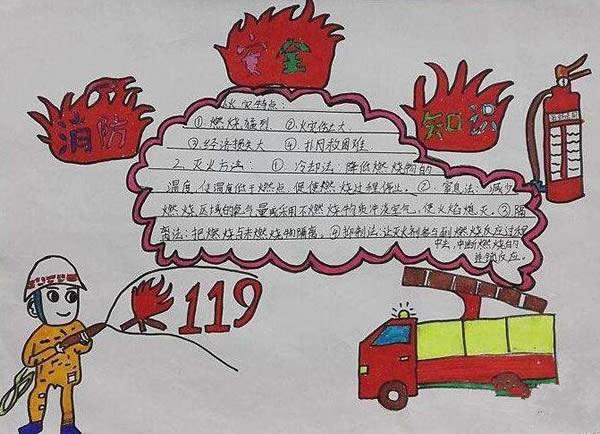 消防
安全
知识
火灾特点：
①燃烧猛烈 ②火灾伤亡大
③经济损失大 ④扑救困难
2.灭火方法：①冷却法：降低燃烧物的
温度，使温度低于燃点，促使燃烧过程停止。②窒息法：减少
燃烧区域的氧气量或采用不燃烧物质冲淡空气，使火焰熄灭。③隔
离法：把燃烧与未燃烧物隔离。④抑制法：让灭火剂参与到燃烧反应过程
中去，中断燃烧的
连锁反应。
119